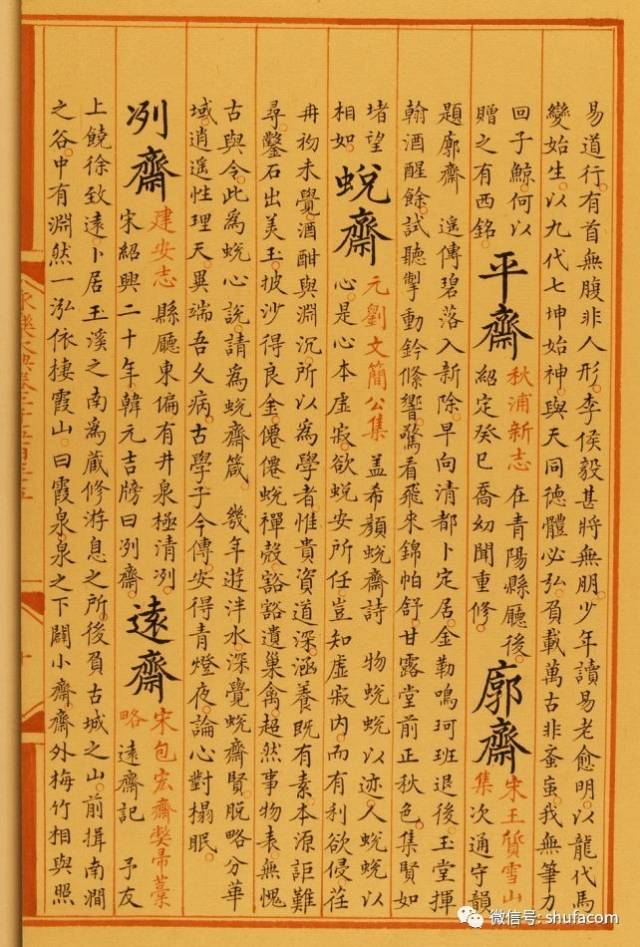 易道行。有首無腹非人形。李侯毅甚將無朋。少年讀易老愈明。以龍代馬
變始生。以九代七坤始神。與天同德體必弘。負載萬古非蚤䖟。我無筆力
回子鯨。何以贈之有西銘。平齋秋浦新志在青陽縣廳後。紹定癸巳喬幼聞重修。廓齋宋王質雪山集次通守韻
題廓齋 遥傳碧落入新除。早向清都卜定居。金勒鳴珂班退後。玉堂揮
翰酒醒餘。試聽掣動鈴絛響。驚看飛來錦帕舒。甘露堂前正秋色。集賢如
堵望相如。蛻齋元劉文簡公集蓋希顏蛻齋詩 物蛻蛻以迹。人蛻蛻以心。是心本虛寂。欲蛻安所任。豈知虛寂内。而有利欲侵。荏
苒初未覺。酒酣與淵沉。所以為學者。惟貴資道深。涵養既有素。本源詎難
尋。鑿石出美玉。披沙得良金。僊僊蛻禪殼。豁豁遺巢禽。超然事物表。無愧
古與今。此為蛻心說。請為蛻齋箴。 幾年遊泮水。深覺蛻齋賢。脫略分華
域。逍遥性理天。異端吾久病。古學子今傳。安得青燈夜。論心對榻眠。
冽齋建安志縣廳東偏有井泉極清冽。宋紹興二十年韓元吉牓曰冽齋。遠齋宋包宏齋獘帚藁略遠齋記 予友
上饒徐致遠。卜居玉溪之南。為藏修游息之所。後負古城之山。前揖南澗
之谷。中有淵然一泓。依棲霞山。曰霞泉。泉之下闢小齋。齋外梅竹相與照
微信号: shufacom